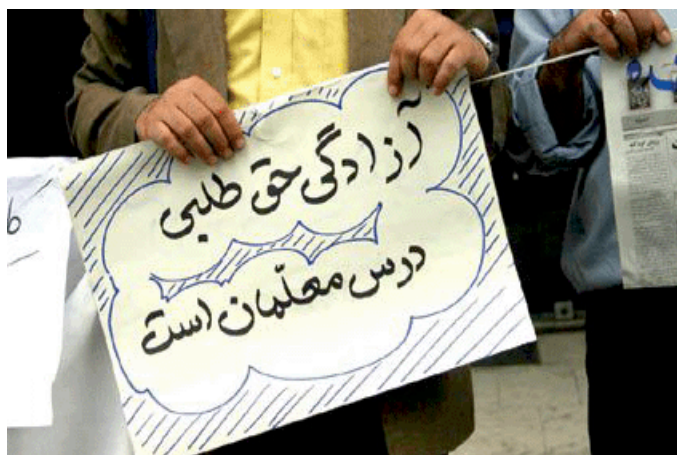 آزادگی حق طلبی
درس معلّمان است